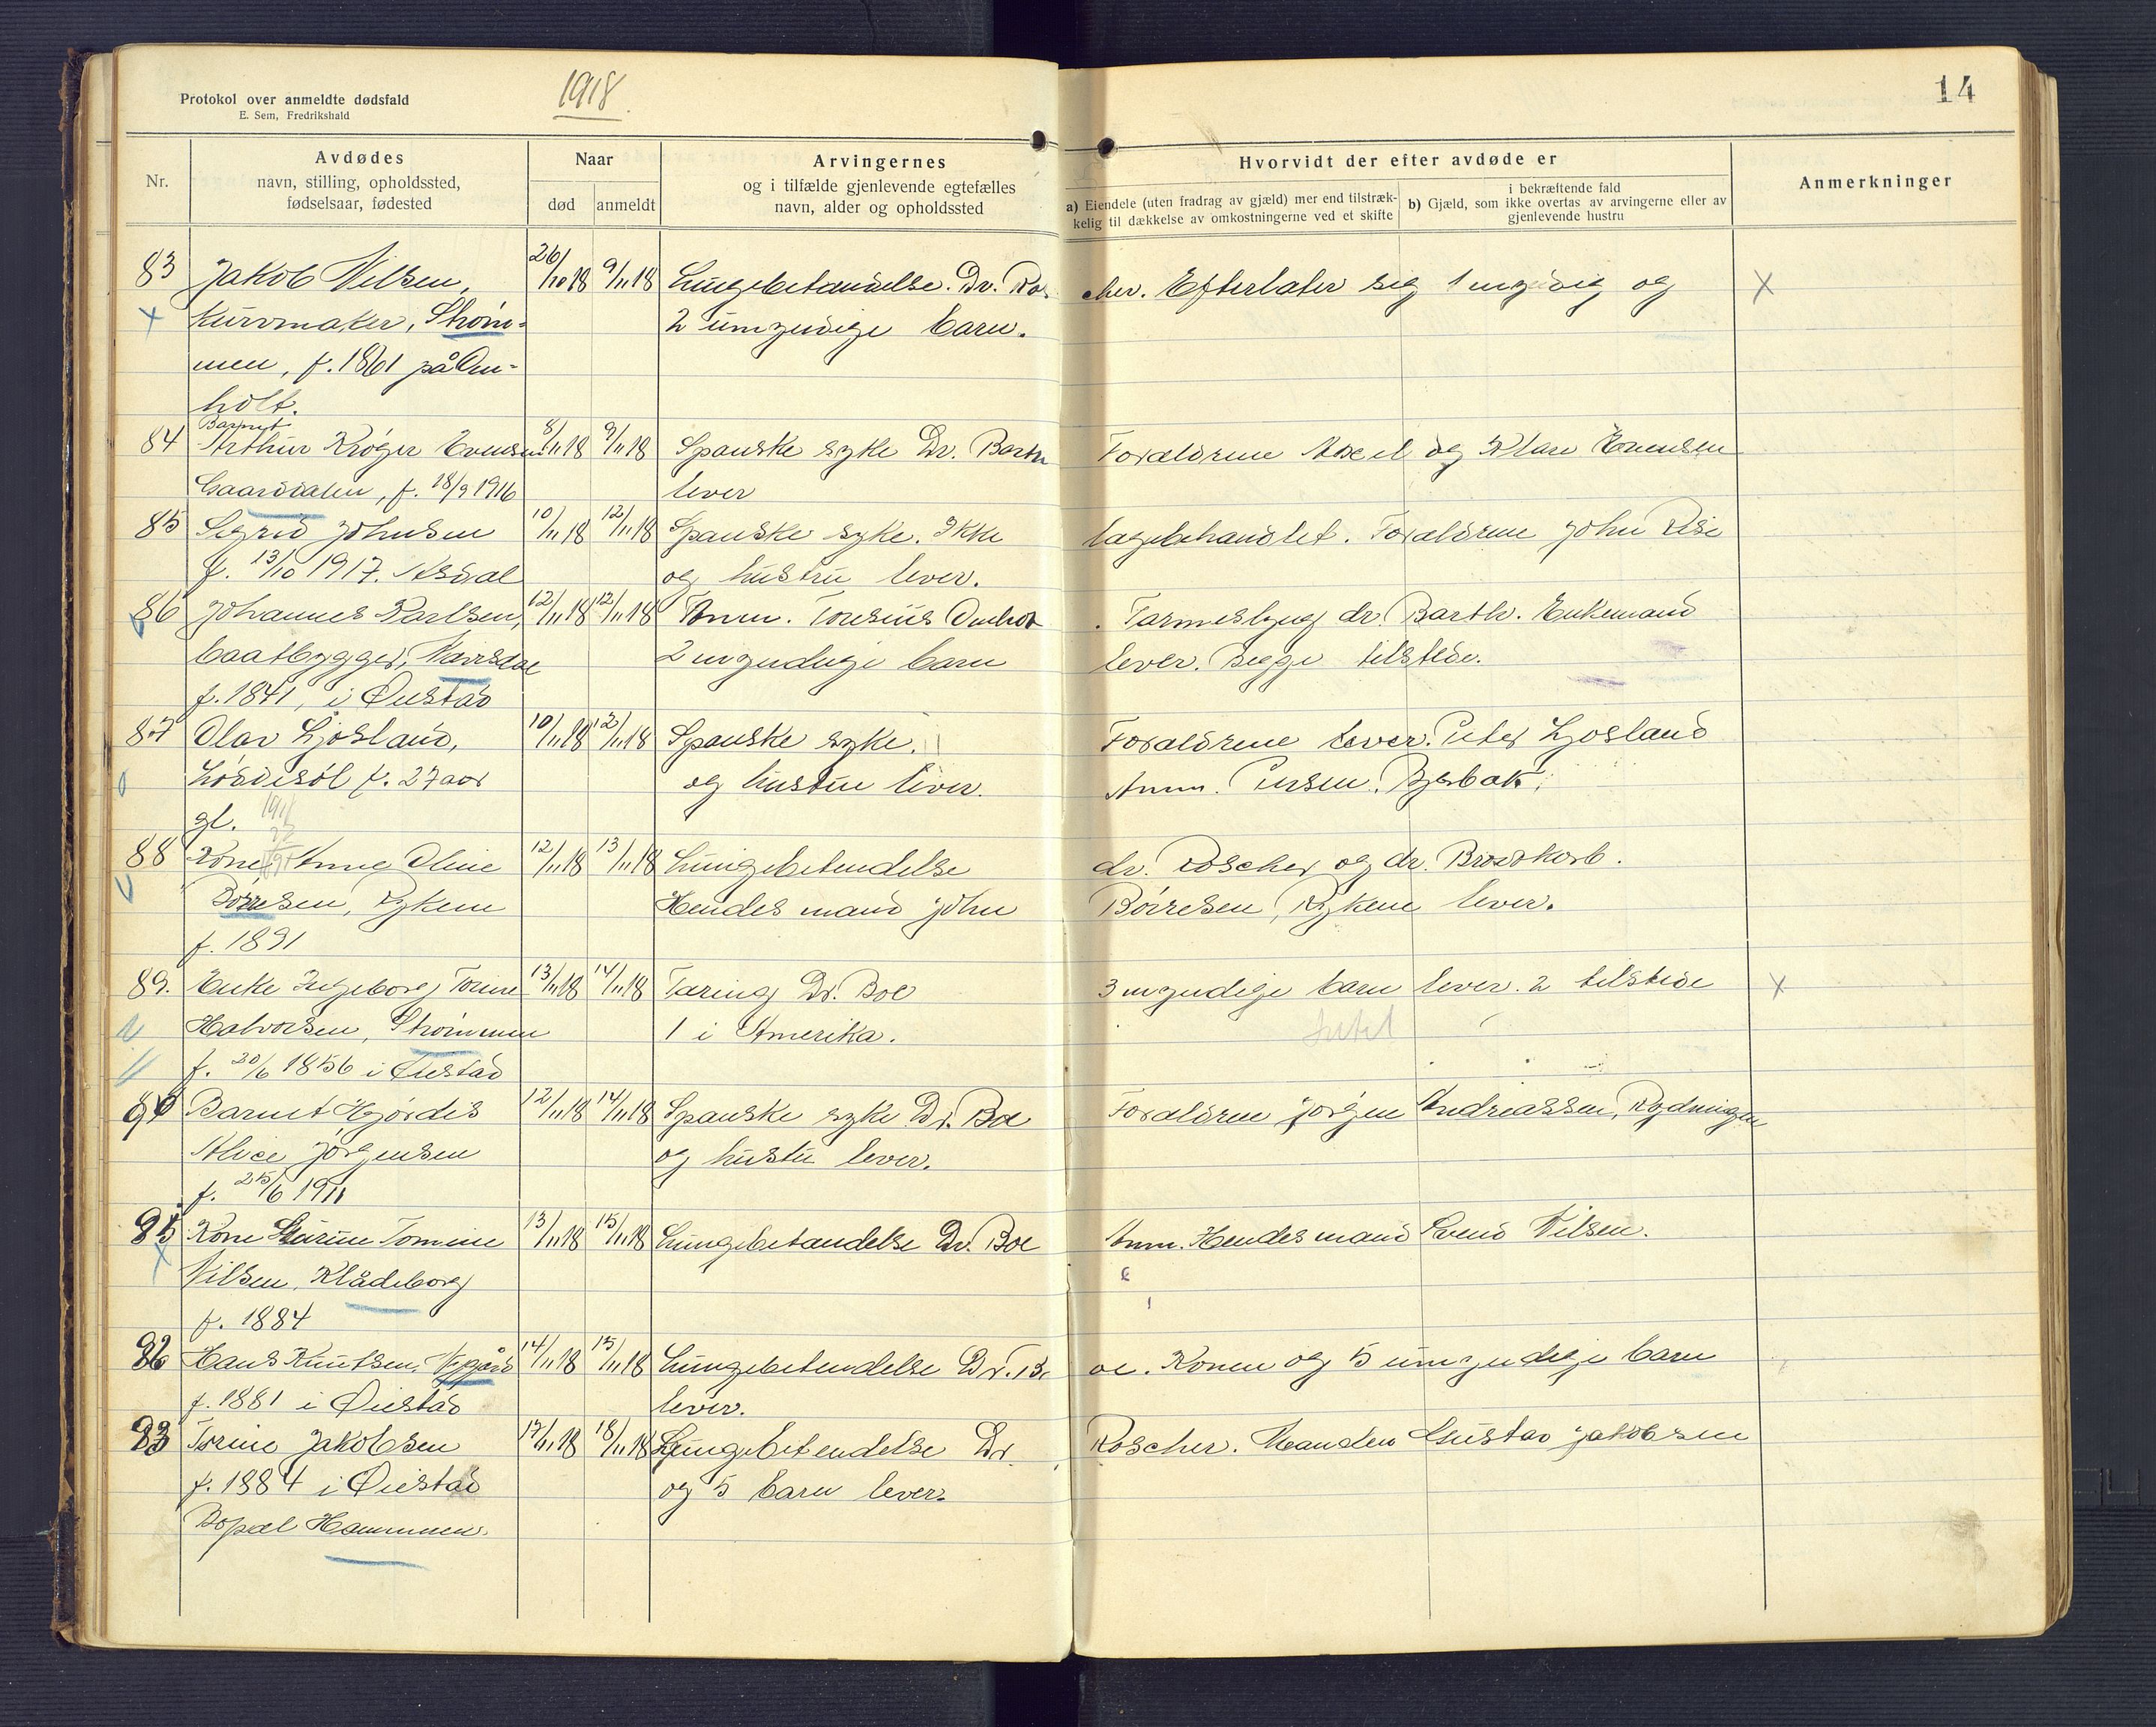 Protokol over anmeldte dødsfald
E. Sem, Fredrikshald
1918.
14
Nr.
Avdødes
navn, stilling, opholdssted,
fødselsaar, fødested
Naar
død
anmeldt
Arvingernes
og i tilfælde gjenlevende egtefælles
navn, alder og opholdssted
Hvorvidt der efter avdøde er
a) Eiendele (uten fradrag av gjæld) mer end tilstræk-
kelig til dækkelse av omkostningerne ved et skifte
i bekræftende fald
b) Gjæld, som ikke overtas av arvingerne eller av
gjenlevende hustru
Anmerkninger
83 Jakob Nilsen, 26/10 18 9/11 18 Lungebetændelse. Dr. Ros cher. Efterlater sig 1 myndig og X
x kurvmaker, Strøm- 2 umyndige barn.
men, f. 1861 på Om-
holt.
Barnet
84 Arthur Krøger Evensen 8/11 18 9/11 18 Spanske syke Dr. Barth Forældrene Axel og Klara Evensen
Gaarddalen, f. 28/9 1916 lever
85 Sigrid Johnsen 10/11 18 12/11 18 Spanske syke. Ikke lægebehandlet. Forældrene John
f. 13/10 1917. Asdal og hustru lever.
86 Johannes Karlsen, 12/11 18 12/11 18 Anm. Tarmeslyng dr. Barth. Enkemand
baatbygger, 2 myndige barn lever. Begge tilstede.
f. 1841, i Øiestad
87 Olav Ljosland, 10/11 18 12/11 18 Spanske syke. Forældrene lever. Peter Ljosland
f. 27 aar og hustru lever. Anm.
gl.
88 Kone Anne Oline 12/11 18 13/11 18 Lungebetendelse dr. Roscher og dr. Brodtkorb.
Børresen, Rykene Hendes mand John Børresen, Rykene lever.
f. 1891
89. Enke Ingeborg Torine 13/11 18 14/11 18 Tæring Dr. Boe 3 myndige barn lever. 2 tilstede X
Halvorsen, Strømmen 1 i Amerika. Intet
f. 30/6 1856 i Øiestad
90 Barnet Hjørdis 12/11 18 14/11 18 Spanske syke Dr. Boe Forældrene Jørgen Andreassen, Rydningen
Alice Jørgensen og hustru lever.
f. 25/6 1911
Kone Tomine 13/11 18 15/11 18 Lungebetændelse Dr. Boe Anm. Hendes mand Svend Nilsen.
Nilsen, Klådeborg
f. 1884
Hans Knutsen, 14/11 18 15/11 18 Lungebetendelse Dr. B oe. Konen og 5 umyndige barn
f. 1881 i Øiestad lever.
93 Torine Jakobsen 17/11 18 18/11 18 Lungebetendelse Dr. Roscher. Manden Gustav Jakobsen
f. 1884 i Øiestad og 5 barn lever.
Bopæl Hammeren.